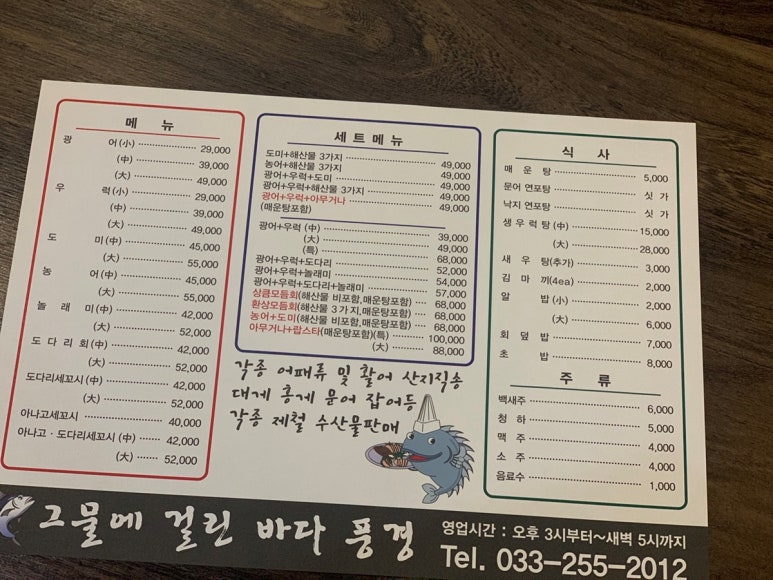 메 뉴
광 어(小) 29,000
(中) 39,000
(大) 49,000
우 럭(小) 29,000
(中) 39,000
(大) 49,000
도 미(中) 45,000
(大) 55,000
농 어(中) 45,000
(大) 55,000
놀 래 미(中) 42,000
(大) 52,000
도 다 리 회(中) 42,000
(大) 52,000
도다리세꼬시(中) 42,000
(大) 52,000
아나고세꼬시 40,000
아나고 · 도다리세꼬시(中) 42,000
(大) 52,000
세 트 메 뉴
도미+해산물 3가지 49,000
농어+해산물 3가지 49,000
광어+우럭+도미 49,000
광어+우럭+해산물 3가지 49,000
광어+우럭+아무거나 49,000
(매운탕포함)
광어+우럭 (中) 39,000
(大) 49,000
(특) 68,000
광어+우럭+도다리 52,000
광어+우럭+놀래미 54,000
광어+우럭+도다리+놀래미 57,000
상큼모듬회(해산물 비포함,매운탕포함) 68,000
환상모듬회(해산물 3가지,매운탕포함) 68,000
농어+도미(해산물 비포함,매운탕포함) 68,000
아무거나+랍스타(매운탕포함)(특) 100,000
(大) 88,000
각종 어패류 및 활어 산지직송
대게 홍게 문어 잡어등
각종 제철 수산물판매
식 사
매 운 탕 5,000
문어 연포탕 싯 가
낙지 연포탕 싯 가
생 우 럭 탕 (中) 15,000
(大) 28,000
새 우 탕(추가) 3,000
김 마 끼(4ea) 2,000
알 밥 (小) 2,000
(大) 6,000
회 덮 밥 7,000
초 밥 8,000
주 류
백새주 6,000
청 하 5,000
맥 주 4,000
소 주 4,000
음료수 1,000
그물에 걸린 바다 풍경
영업시간 : 오후 3시부터~새벽 5시까지
Tel. 033-255-2012